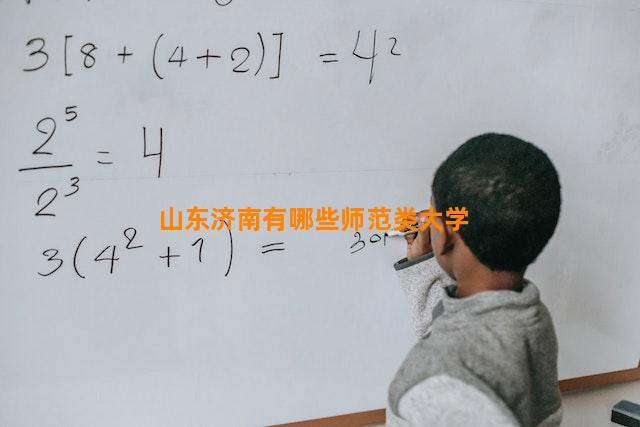 3[8+(4+2)] = 42
2^5/2^3 = 4
山东济南有哪些师范类大学
3(4^2+1) = 301